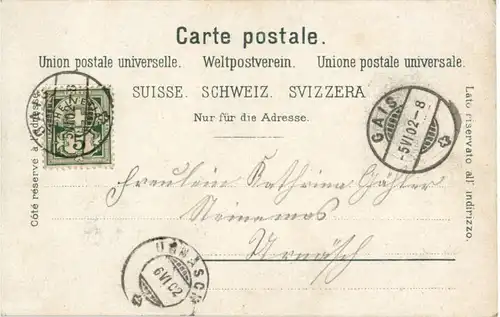 Carte postale.
Union postale universelle. Weltpostverein. Unione postale universale.
SUISSE. SCHWEIZ. SVIZZERA
Nur für die Adresse.
Côté réservé à l'adresse.
Lato riservato all' indirizzo.
GAIS
-5 VI 02 -8
5
Fräulein Kathrina Gähler
Steinemos
Urnäsch
URNÄSCH
6 VI 02